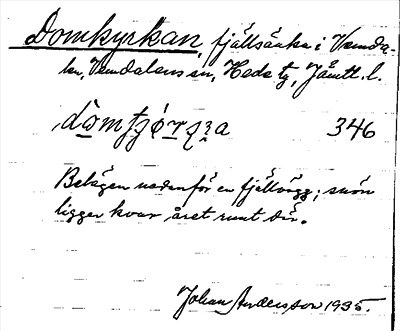 Domkyrkan, fjällsänka i Vemda-
len, Vemdalens sn, Hede tg, Jämtl. l.
346
Belägen nedanför en fjällvägg; snön
ligger kvar året runt där.
Johan Andersson 1935.